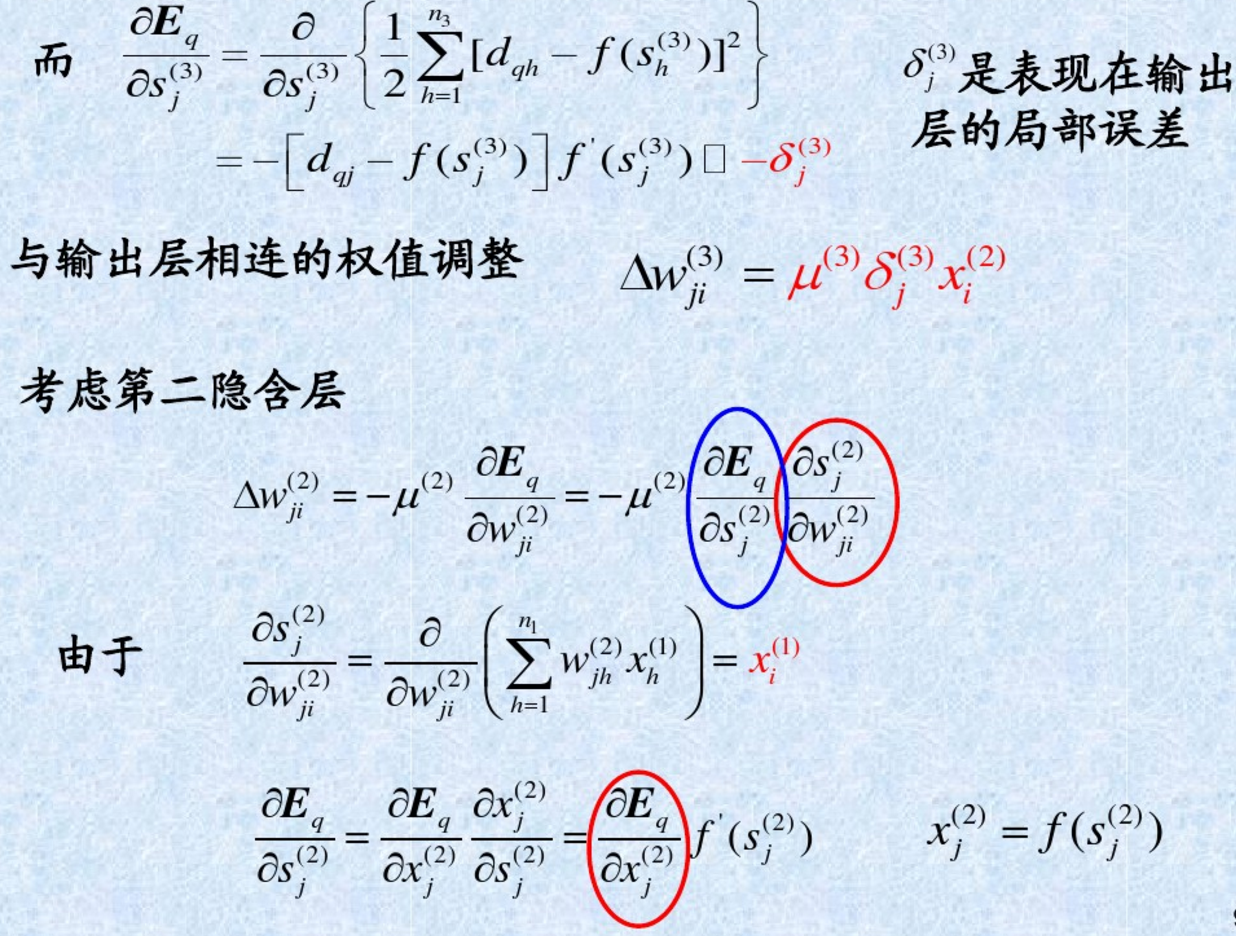 而 $\frac{\partial E_q}{\partial s_j^{(3)}} = \frac{\partial}{\partial s_j^{(3)}} \left\{ \frac{1}{2} \sum_{h=1}^{n_3} [d_{qh} - f(s_h^{(3)})]^2 \right\}$
$= -\left[ d_{qj} - f(s_j^{(3)}) \right] f^{'}(s_j^{(3)}) \square -\delta_j^{(3)}$
$\delta_j^{(3)}$是表现在输出
层的局部误差
与输出层相连的权值调整 $\Delta w_{ji}^{(3)} = \mu^{(3)} \delta_j^{(3)} x_i^{(2)}$
考虑第二隐含层
$\Delta w_{ji}^{(2)} = -\mu^{(2)} \frac{\partial E_q}{\partial w_{ji}^{(2)}} = -\mu^{(2)} \frac{\partial E_q}{\partial s_j^{(2)}} \frac{\partial s_j^{(2)}}{\partial w_{ji}^{(2)}}$
由于 $\frac{\partial s_j^{(2)}}{\partial w_{ji}^{(2)}} = \frac{\partial}{\partial w_{ji}^{(2)}} \left( \sum_{h=1}^{n_1} w_{jh}^{(2)} x_h^{(1)} \right) = x_i^{(1)}$
$\frac{\partial E_q}{\partial s_j^{(2)}} = \frac{\partial E_q}{\partial x_j^{(2)}} \frac{\partial x_j^{(2)}}{\partial s_j^{(2)}} = \frac{\partial E_q}{\partial x_j^{(2)}} f^{'}(s_j^{(2)})$ $x_j^{(2)} = f(s_j^{(2)})$